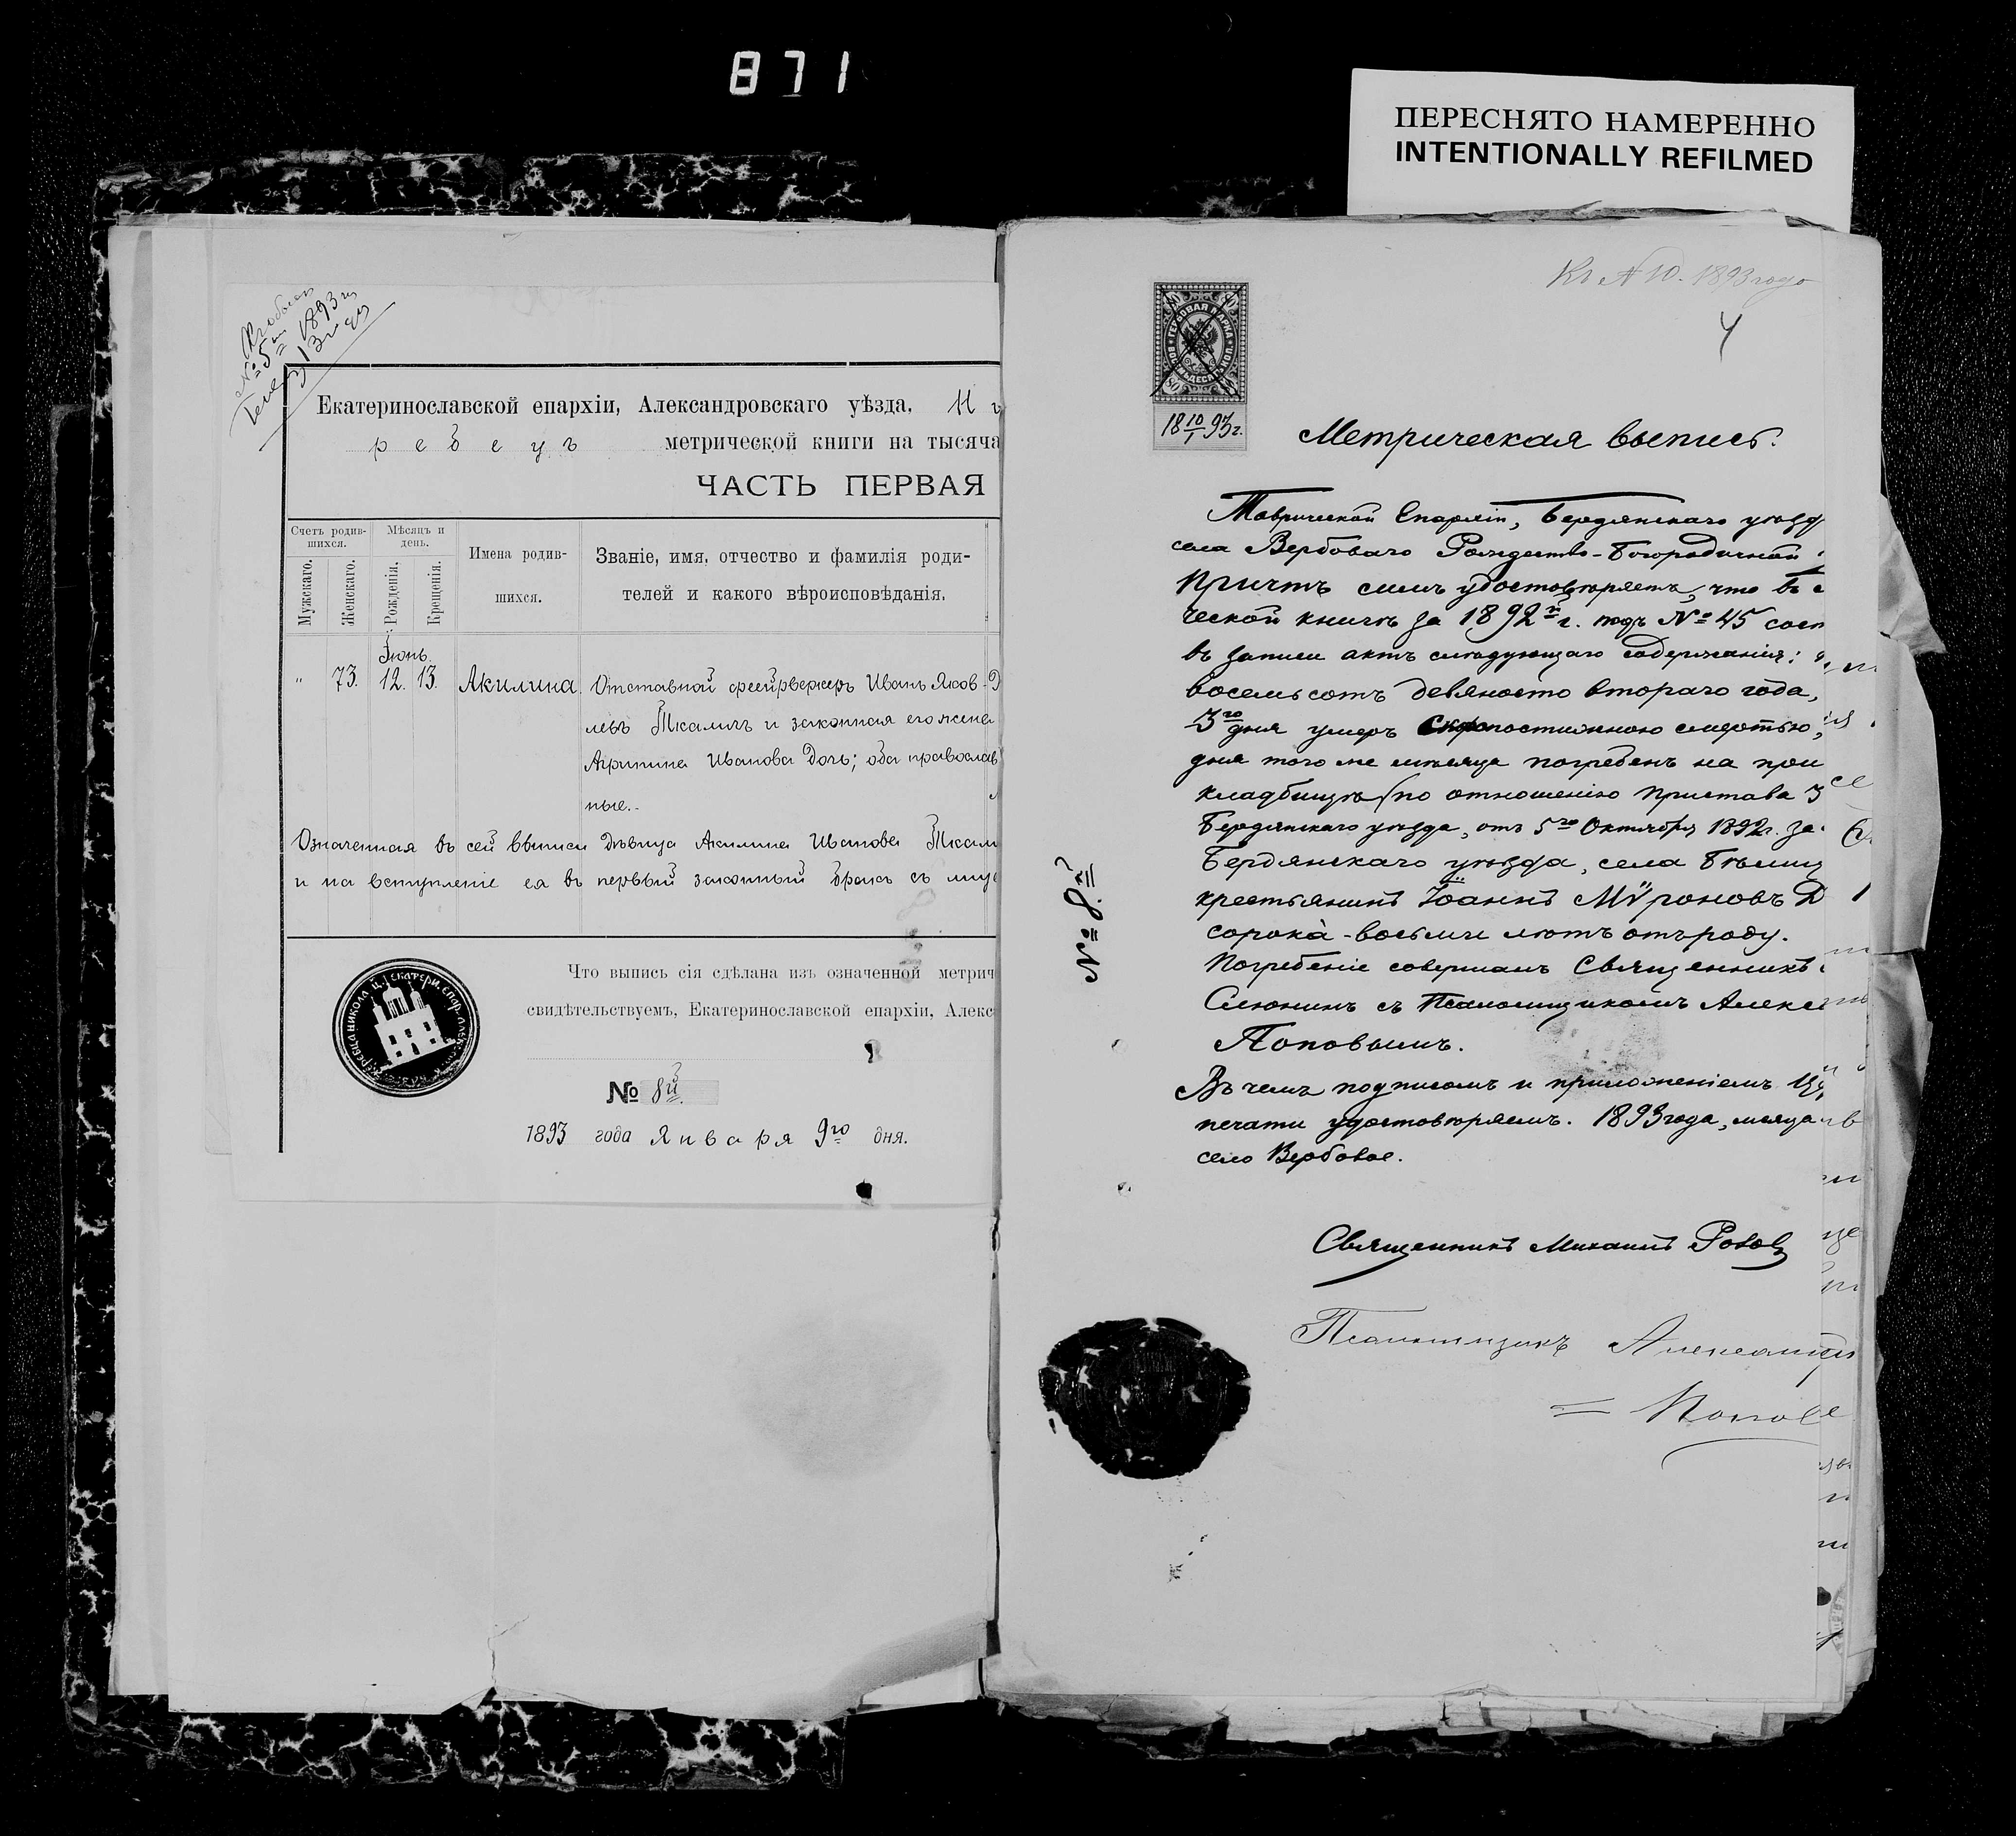 871
ПЕРЕСНЯТО НАМЕРЕННО
INTENTIONALLY REFILMED
№ 5й 1893 г.
Екатеринославской епархіи, Александровскаго уѣзда,
метрической книги на тысяча
ЧАСТЬ ПЕРВАЯ
Счетъ родив-
шихся.
Мужскаго.
Женскаго.
Мѣсяцъ и
день.
Рожденія.
Крещенія.
Имена родив-
шихся.
Званіе, имя, отчество и фамилія роди-
телей и какого вѣроисповѣданія.
Іюнь.
" 73. 12. 13. Акилина. Отставной фейрверкеръ Иванъ Яков-
левъ Ткаличъ и законная его жена
Агрипина Иванова Дочь; оба православ
ные.-
Означенная въ сей выписи Дѣвица Акилина Иванова Ткали
и на вступленіе ея въ первый законный бракъ съ
Что выпись сія сдѣлана изъ означенной метрич
свидѣтельствуемъ, Екатеринославской епархіи, Алекс
№ 8й.
1893 года Января 9го дня.
Къ № 10. 1893 года
4
18 10/I 93 г.
Метрическая выпись.
Таврической Епархіи, Бердянскаго уѣзд
села Вербоваго Рождество-Богородичной
Причтъ симъ удостовѣряетъ, что въ
ческой книгѣ за 1892й г. подъ № 45 сост
въ записи актъ слѣдующаго содержанія:
восемьсотъ девяносто втораго года,
3го дня умеръ скоропостижною смертью,
дня того же мѣсяца погребенъ на при
кладбищѣ (по отношенію Пристава 3
Бердянскаго уѣзда, отъ 5го Октября 1892г. за
Бердянскаго уѣзда, села
крестьянинъ Іоаннъ Мѵроновъ Д
сорока-восьми лѣтъ отъ роду.
Погребеніе совершалъ Священникъ
съ Псаломщикомъ Алекса
Поповымъ.
Въ чемъ подписомъ и приложеніемъ
печати удостовѣряемъ. 1893 года, мѣсяца
село Вербовое.
№ 8й
Священникъ Михаилъ
Псаломщикъ Александр
Попов